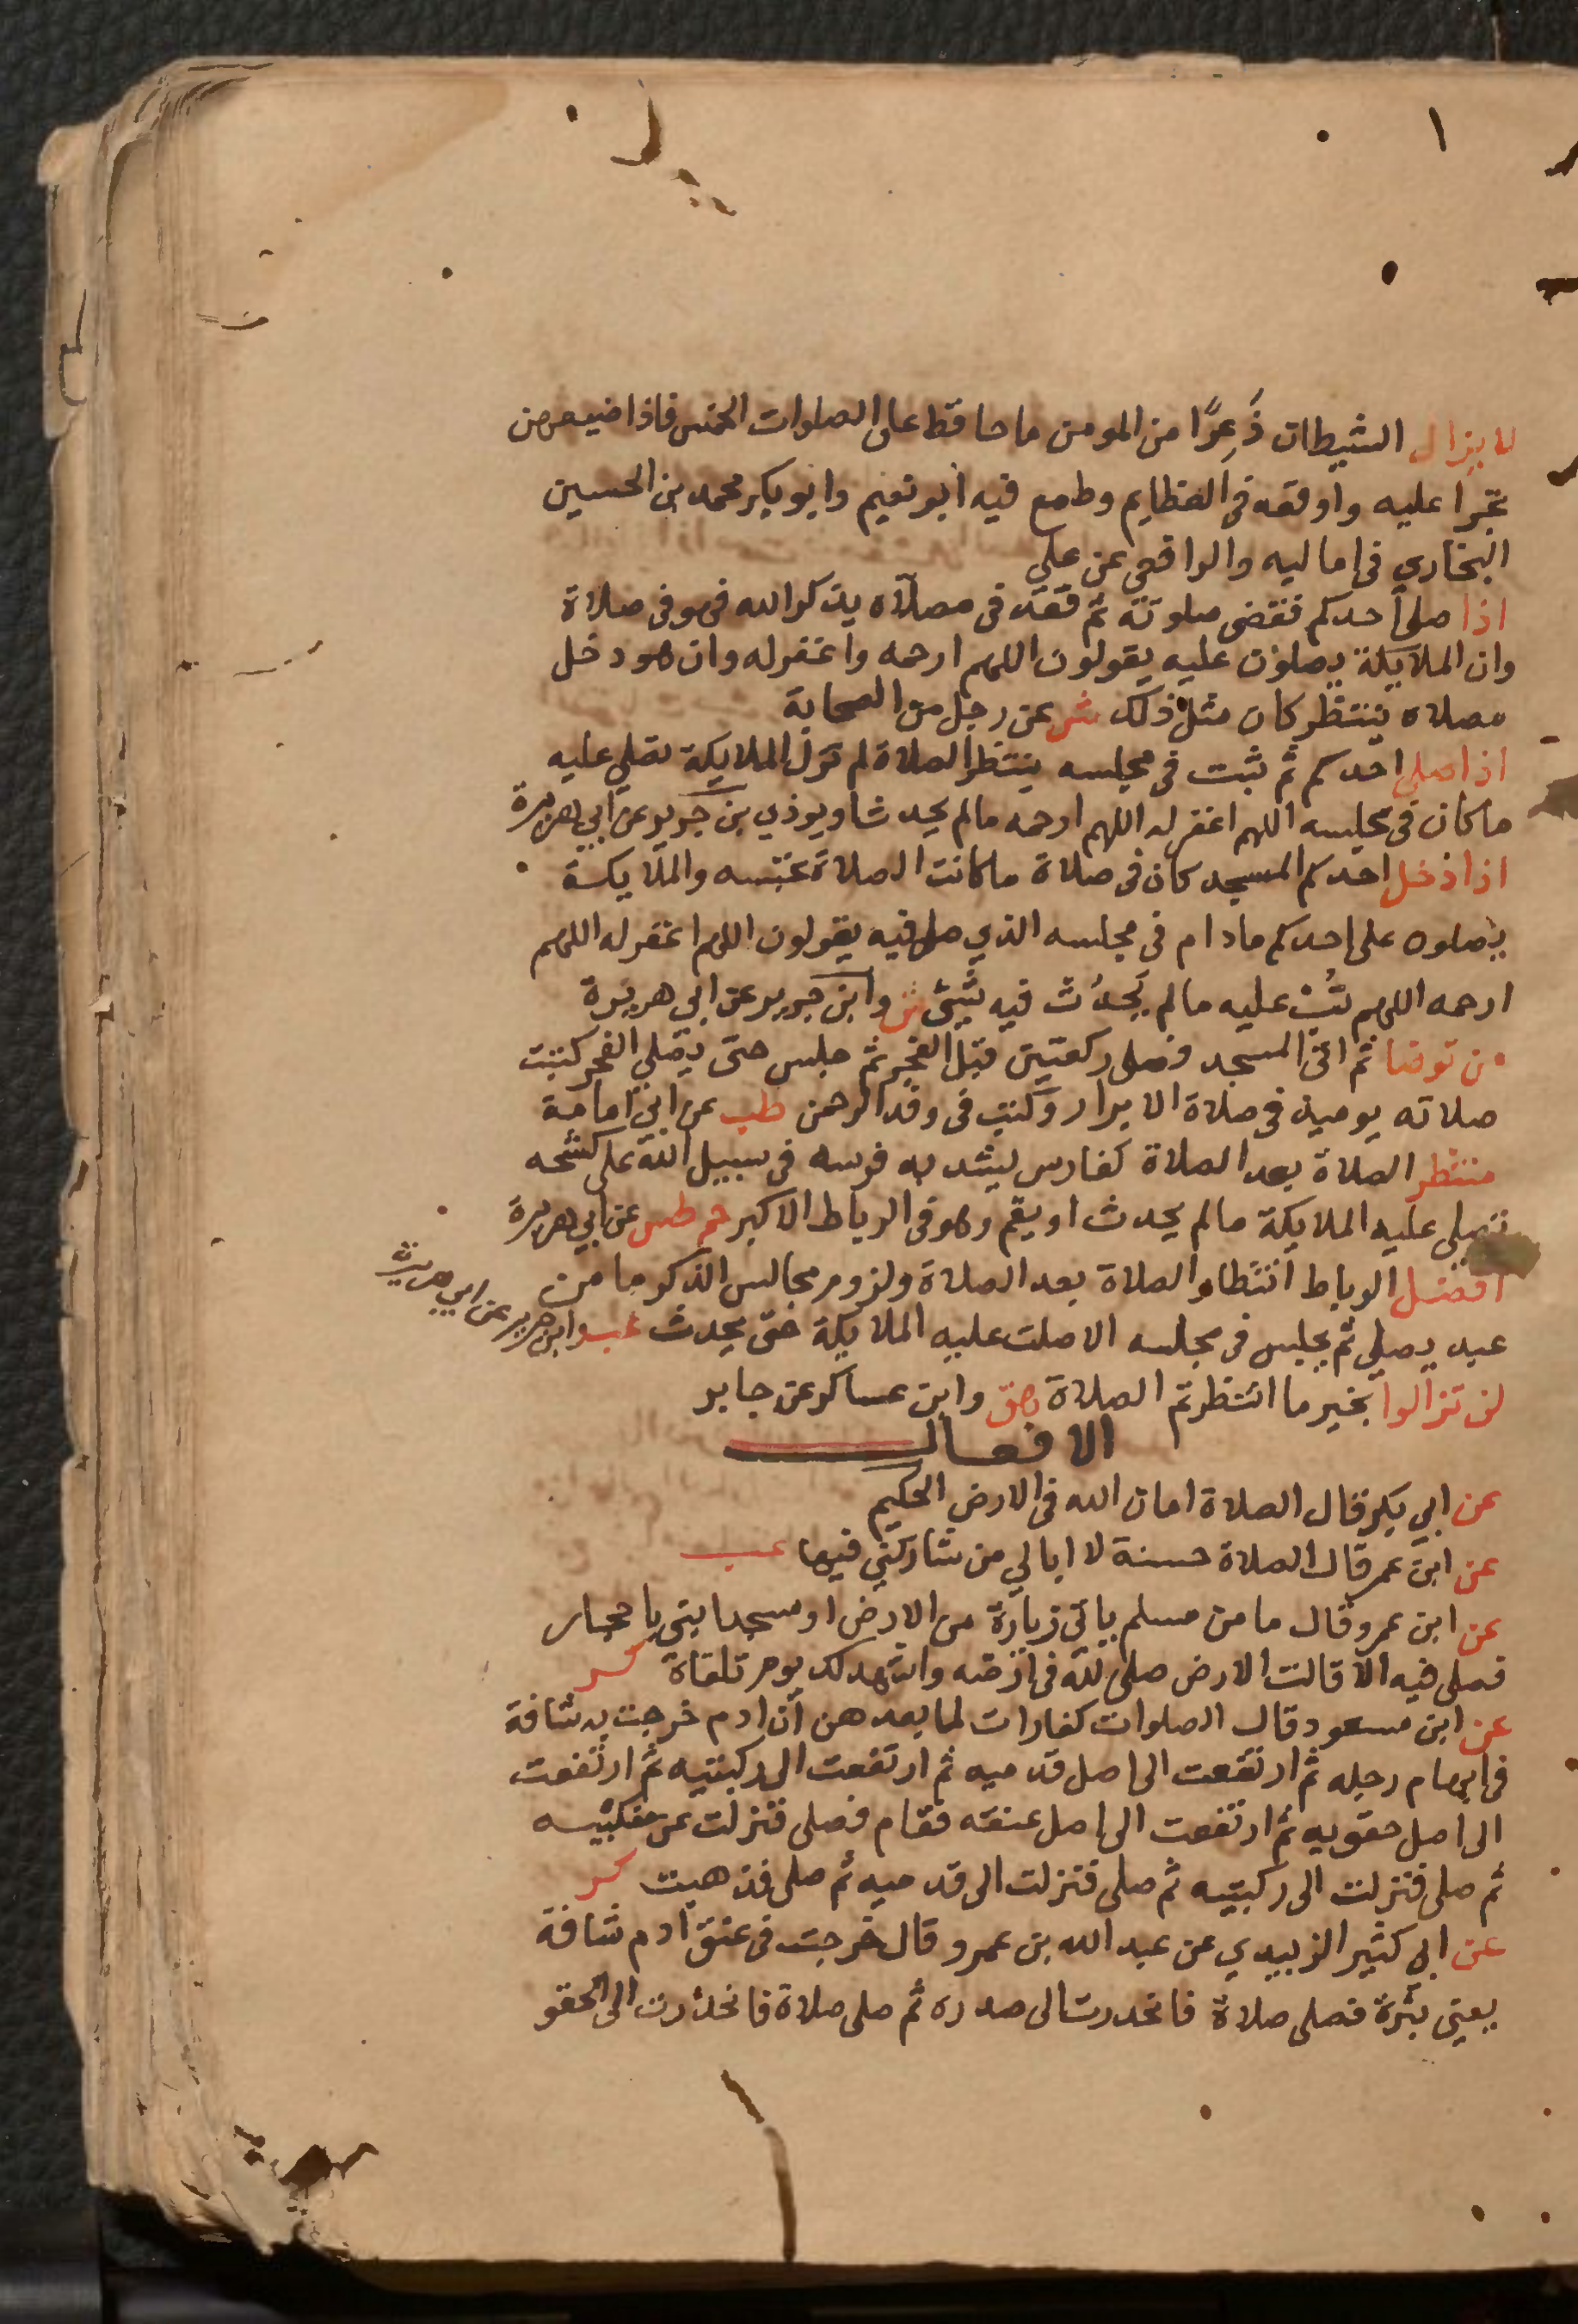 لا يزال الشيطان ذَعِرًا من المومن ما حافظ على الصلوات الخمس فاذا ضيعهن
تجرا عليه واوقعه فى العظايم وطمع فيه ابو نعيم وابو بكر محمد بن الحسين
البخاري فى اماليه والرافعي عن علي
اذا صلى احدكم فقضى صلوته ثم قعد فى مصلاه يذكر الله فهو فى صلاة
وان الملايكة يصلون عليه يقولون اللهم ارحمه واغفر له وان هو دخل
مصلاه ينتظر كان مثل ذلك ش عن رجل من الصحابة
اذا صلى احدكم ثم ثبت فى مجلسه ينتظر الصلاة لم تزل الملايكة تصلي عليه
ما كان فى مجلسه اللهم اغفر له اللهم ارحمه ما لم يحدث او يوذي بن جرير عن ابي هريرة
اذا دخل احدكم المسجد كان فى صلاة ما كانت الصلاة تحبسه والملايكة
يصلون على احدكم ما دام فى مجلسه الذي صلى فيه يقولون اللهم اغفر له اللهم
ارحمه اللهم تُب عليه ما لم يحدث فيه شئ ش وابن جرير عن ابي هريرة
من توضا ثم اتى المسجد فصلى ركعتين قبل الفجر ثم جلس حتى يصلي الفجر كتبت
صلاته يوميذ فى صلاة الابرار وكتب فى وفد الرحمن طب عن ابي امامة
منتظر الصلاة بعد الصلاة كفارس يشد به فرسه فى سبيل الله على كشحه
تصلي عليه الملايكة ما لم يحدث او يقم وهو فى الرباط الاكبر حم طس عن ابي هريرة
افضل الرباط انتظار الصلاة بعد الصلاة ولزوم مجالس الذكر ما من
عبد يصلي ثم يجلس فى مجلسه الا صلت عليه الملايكة حتى يحدث عب وابن جرير عن ابي هريرة
لن تزالوا بخير ما انتظرتم الصلاة هق وابن عساكر عن جابر
الافعال
عن ابي بكر قال الصلاة امان الله فى الارض الحكيم
عن ابن عمر قال الصلاة حسنة لا ابالي من شاركني فيها عب
عن ابن عمرو قال ما من مسلم ياتي زيارة من الارض او مسجدا بني باحجار
فصلى فيه الا قالت الارض صلى لله فى ارضه واشهد لك يوم تلقاه كر
عن ابن مسعود قال الصلوات كفارات لما بعدهن ان ادم خرجت به شافة
فى ابهام رجله ثم ارتفعت الى اصل قدميه ثم ارتفعت الى ركبتيه ثم ارتفعت
الى اصل حقويه ثم ارتفعت الى اصل عنقه فقام فصلى فنزلت عن منكبيه
ثم صلى فنزلت الى ركبتيه ثم صلى فنزلت الى قدميه ثم صلى فذهبت كر
عن ابي كثير الزبيدي عن عبد الله بن عمرو قال خرجت فى عنق ادم شافة
يعني بثرة فصلى صلاة فانحدرت الى صدره ثم صلى صلاة فانحدرت الى الحقو